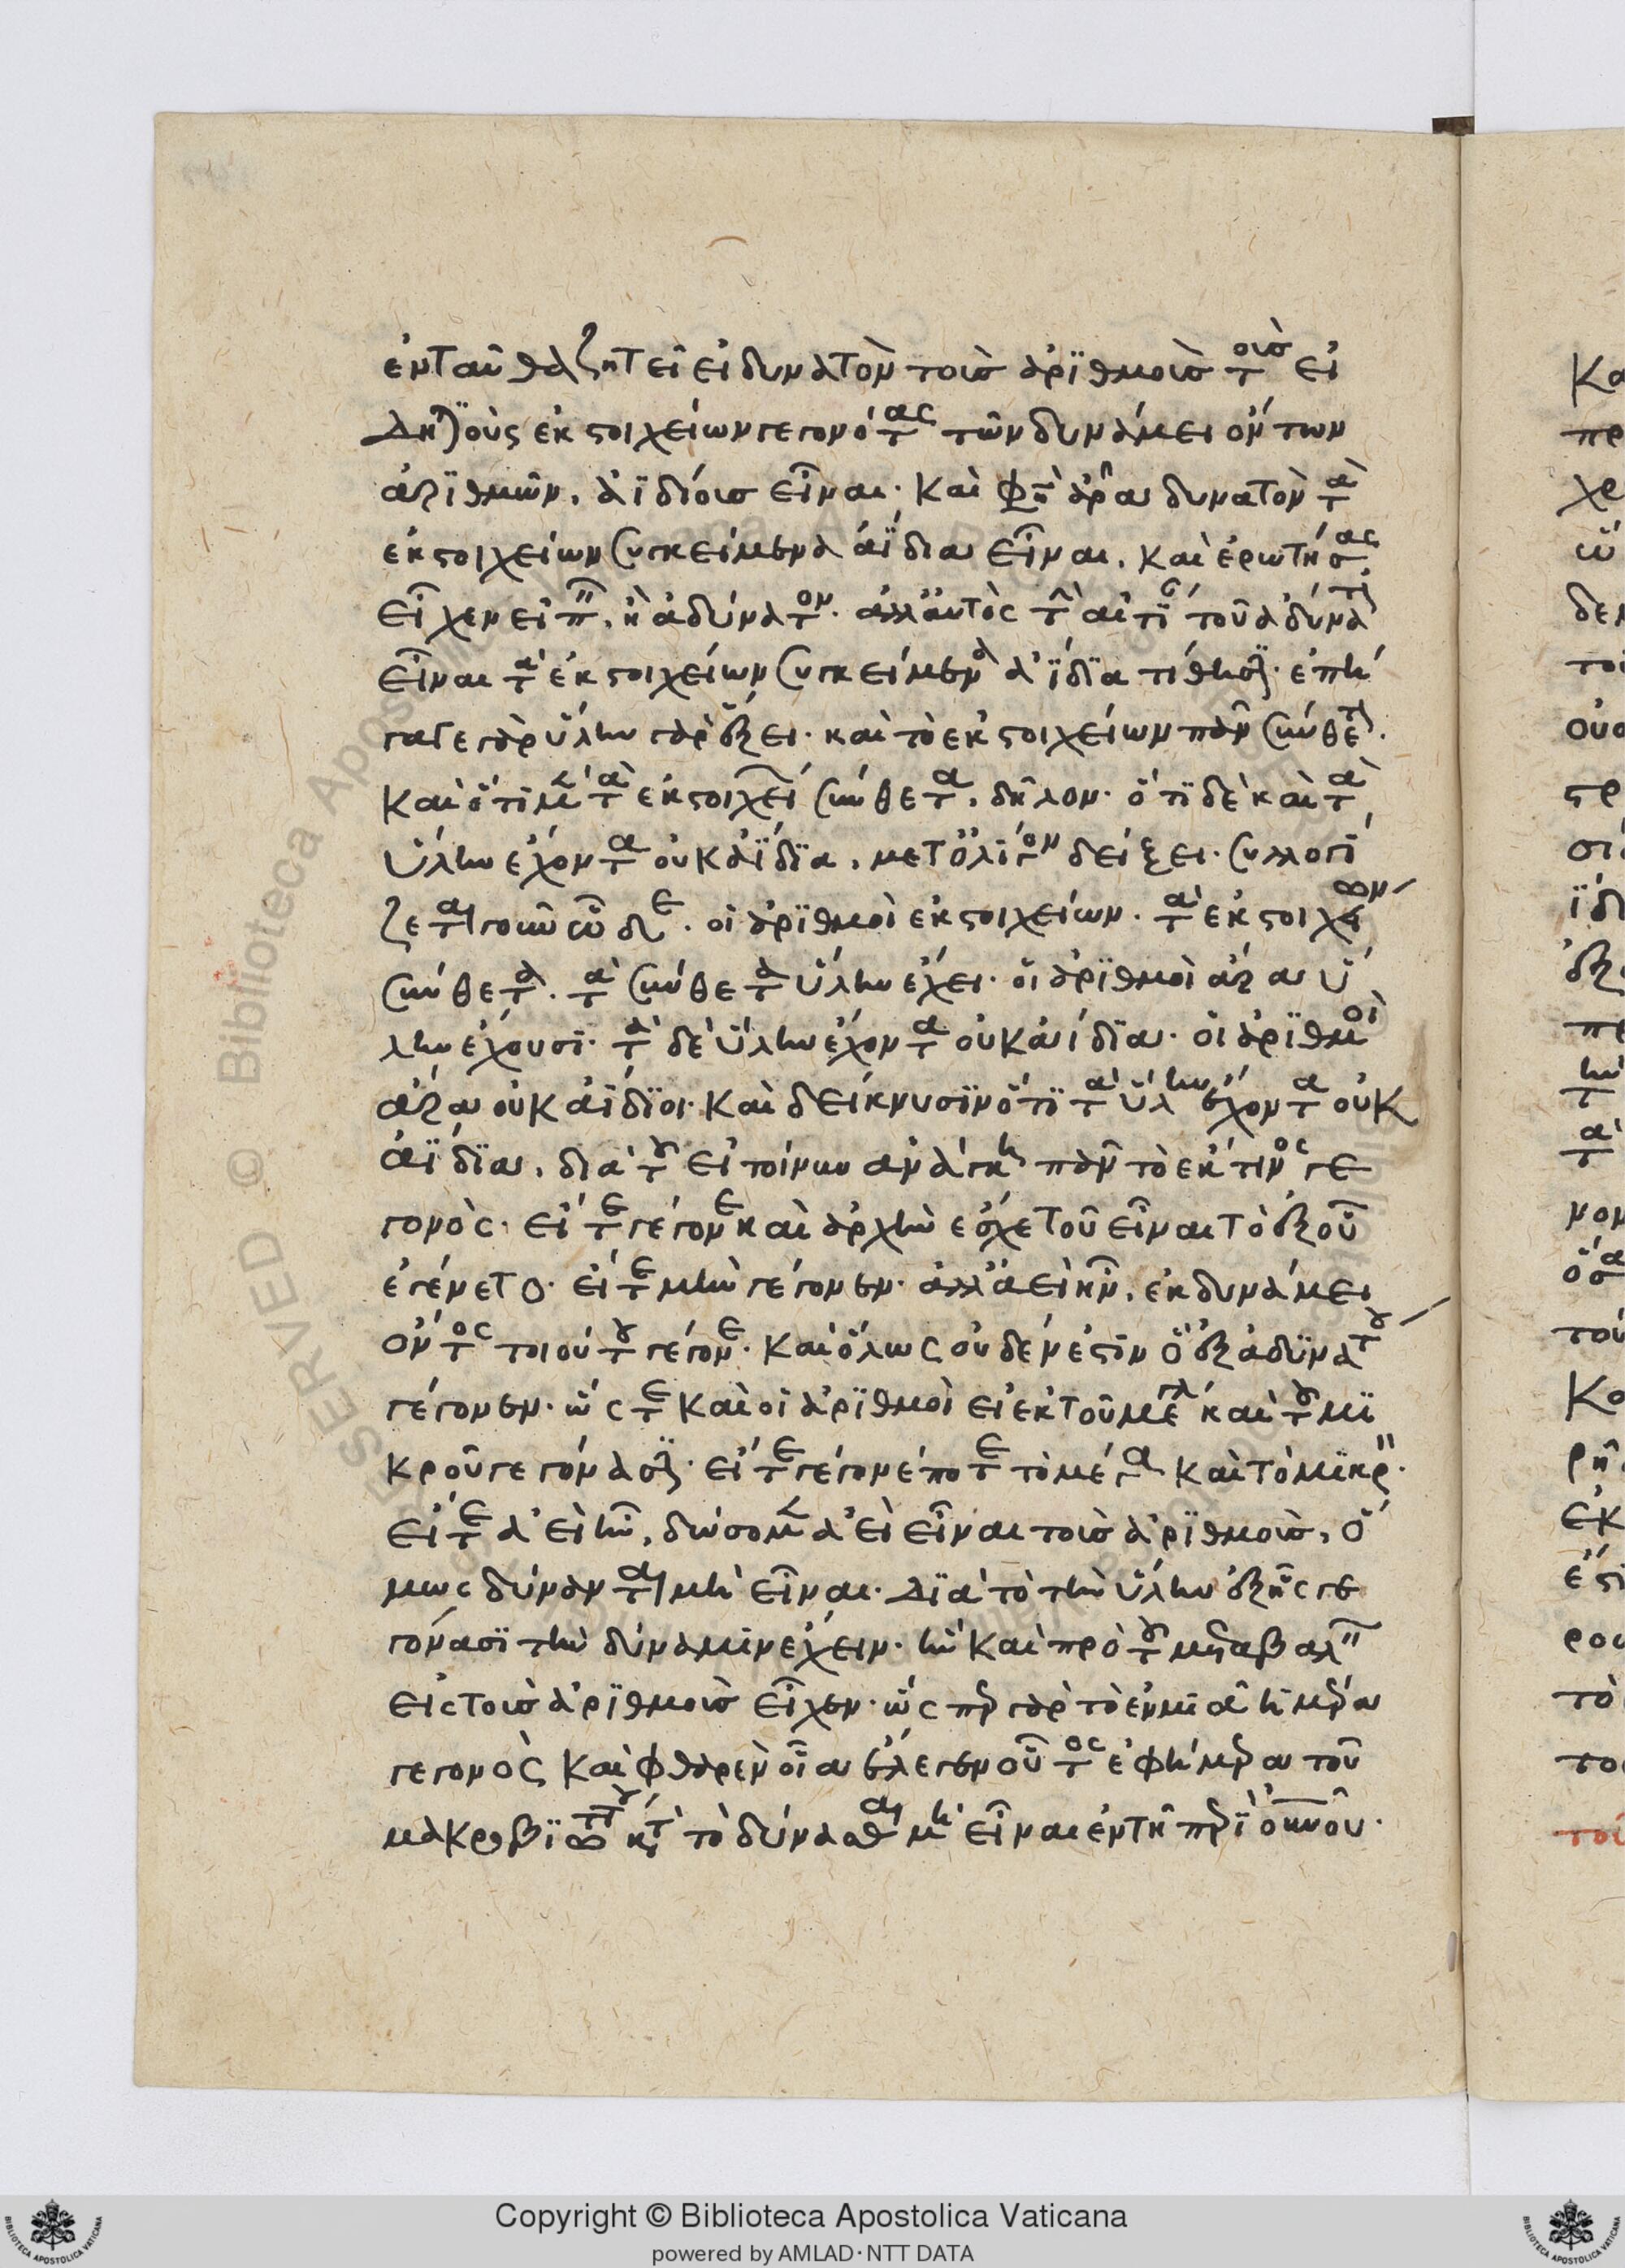 ἐνταῦθα ζητεῖ εἰ δυνατὸν τοὺς ἀρϊθμοὺς τοὺς εἰ
δη ους ἐκ στοιχείων γεγονότας τῶν δυνάμει ὄντων
ἀρϊθμῶν, ἀϊδίους εἶναι· καὶ φησὶ ἆρα δυνατὸν τὰ
ἐκ στοιχείων συγκείμενα ἀΐδια εἶναι, καὶ ἐρωτήσας
εἶχεν εἰπεῖν, ἢ ἀδύνατον· ἀλλ' αὐτὸς τὴν αἰτίαν τοῦ ἀδύνατ
εἶναι τὰ ἐκ στοιχείων συγκείμενα ἀΐδϊα τίθησι· ἐπή
γαγε γὰρ ὕλην γὰρ ἕξει· καὶ τὸ ἐκ στοιχείων πᾶν σύνθετ
καὶ ὅτι μὲν τὰ ἐκ στοιχεί σύνθετα, δῆλον· ὅτϊ δὲ καὶ τὰ
ὕλην ἔχοντα οὐκ ἀΐδϊα, μετ' ὀλίγον δείξει· συλλογί
ζεται γοῦν ὧδε· οἱ ἀρϊθμοὶ ἐκ στοιχείων· τὰ ἐκ στοιχείων
σύνθετα· τὰ σύνθετα ὕλην ἔχει· οἱ ἀρϊθμοὶ ἄρα ὕ
λην ἔχουσϊ· τὰ δὲ ὕλην ἔχοντα οὐκ ἀΐδϊα· οἱ ἀρϊθμοὶ
ἄρα οὐκ ἀΐδϊοι· καὶ δείκνυσϊν ὅτϊ τὰ ὕλην ἔχοντα οὐκ
ἀΐδϊα, διὰ τοῦ εἰ τοίνυν ἀνάγκη πᾶν τὸ ἔκ τινος γε
γονὸς· εἴτε γέγονε καὶ ἀρχὴν ἔσχε τοῦ εἶναι τὸ ἐξ οὗ
ἐγένετο· εἴτε μὴ γέγονεν· ἀλλ' ἀεὶ ἦν, ἐκ δυνάμει
ὄντος τοιούτου γέγονε· καὶ ὅλως οὐδέν ἐστϊν ὃ ἐξ ἀδϋνάτου
γέγονεν· ὥστε καὶ οἱ ἀρϊθμοὶ εἰ ἐκ τοῦ μεγάλου καὶ τοῦ μϊ
κροῦ γεγόνασι· εἴτε γέγονέ ποτε τὸ μέγα καὶ τὸ μϊκρὸν·
εἴτε ἀεὶ ἦν, δώσομεν ἀεὶ εἶναι τοὺς ἀρϊθμοὺς, ὅ
μως δύνανται μὴ εἶναι· δϊὰ τὸ τὴν ὕλην ἐξ ἧς γε
γόνασϊ τὴν δύναμϊν ἔχειν· ἣν καὶ πρὸ τοῦ μεταβαλεῖν
εἰς τοὺς ἀρϊθμοὺς εἶχεν· ὥσπερ γὰρ τὸ ἐν μϊᾷ ἡμέρα
γεγονὸς καὶ φθαρὲν οἷα ἔλεγεν οὗτος ἐφήμερα τοῦ
μακροβϊωτάτου κατὰ τὸ δύνασθαι μὴ εἶναι ἐν τῆ περϊόδου